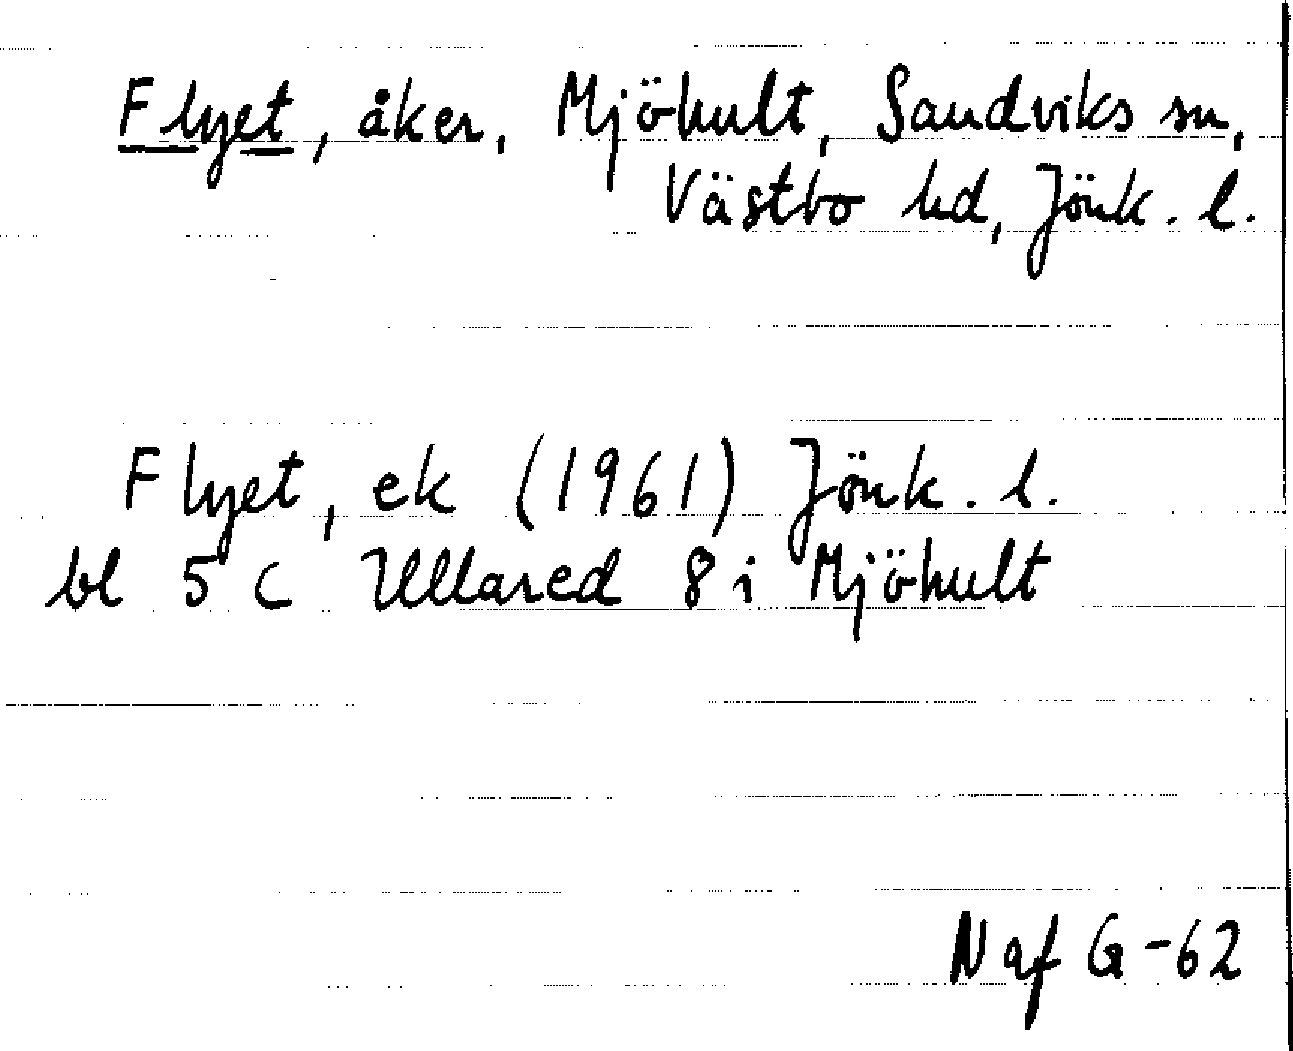 Flyet, åker, Mjöhult, Sandviks sn,
Västbo hd, Jönk. l.
Flyet, ek (1961) Jönk. l.
bl 5 C Ullared 8 i Mjöhult
Naf G-62